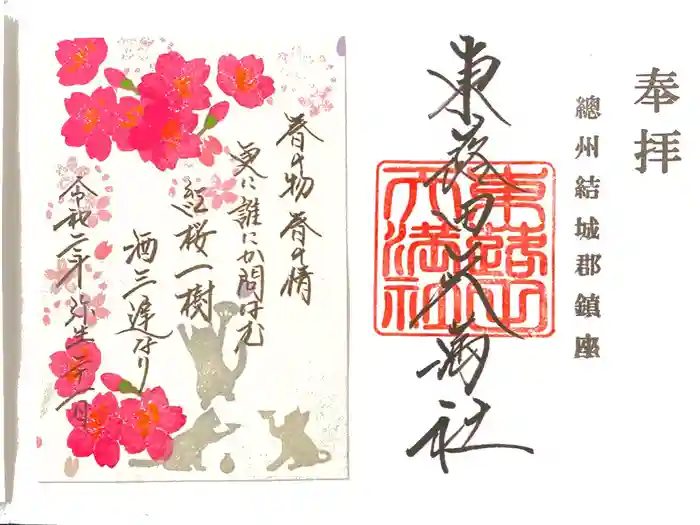 奉拝
總州結城郡鎮座
東蕗田天満社
東蕗田
天満社
春の物春の情
更に誰にか問はむ
紅桜一樹
酒三遅なり
令和二年弥生二十一日